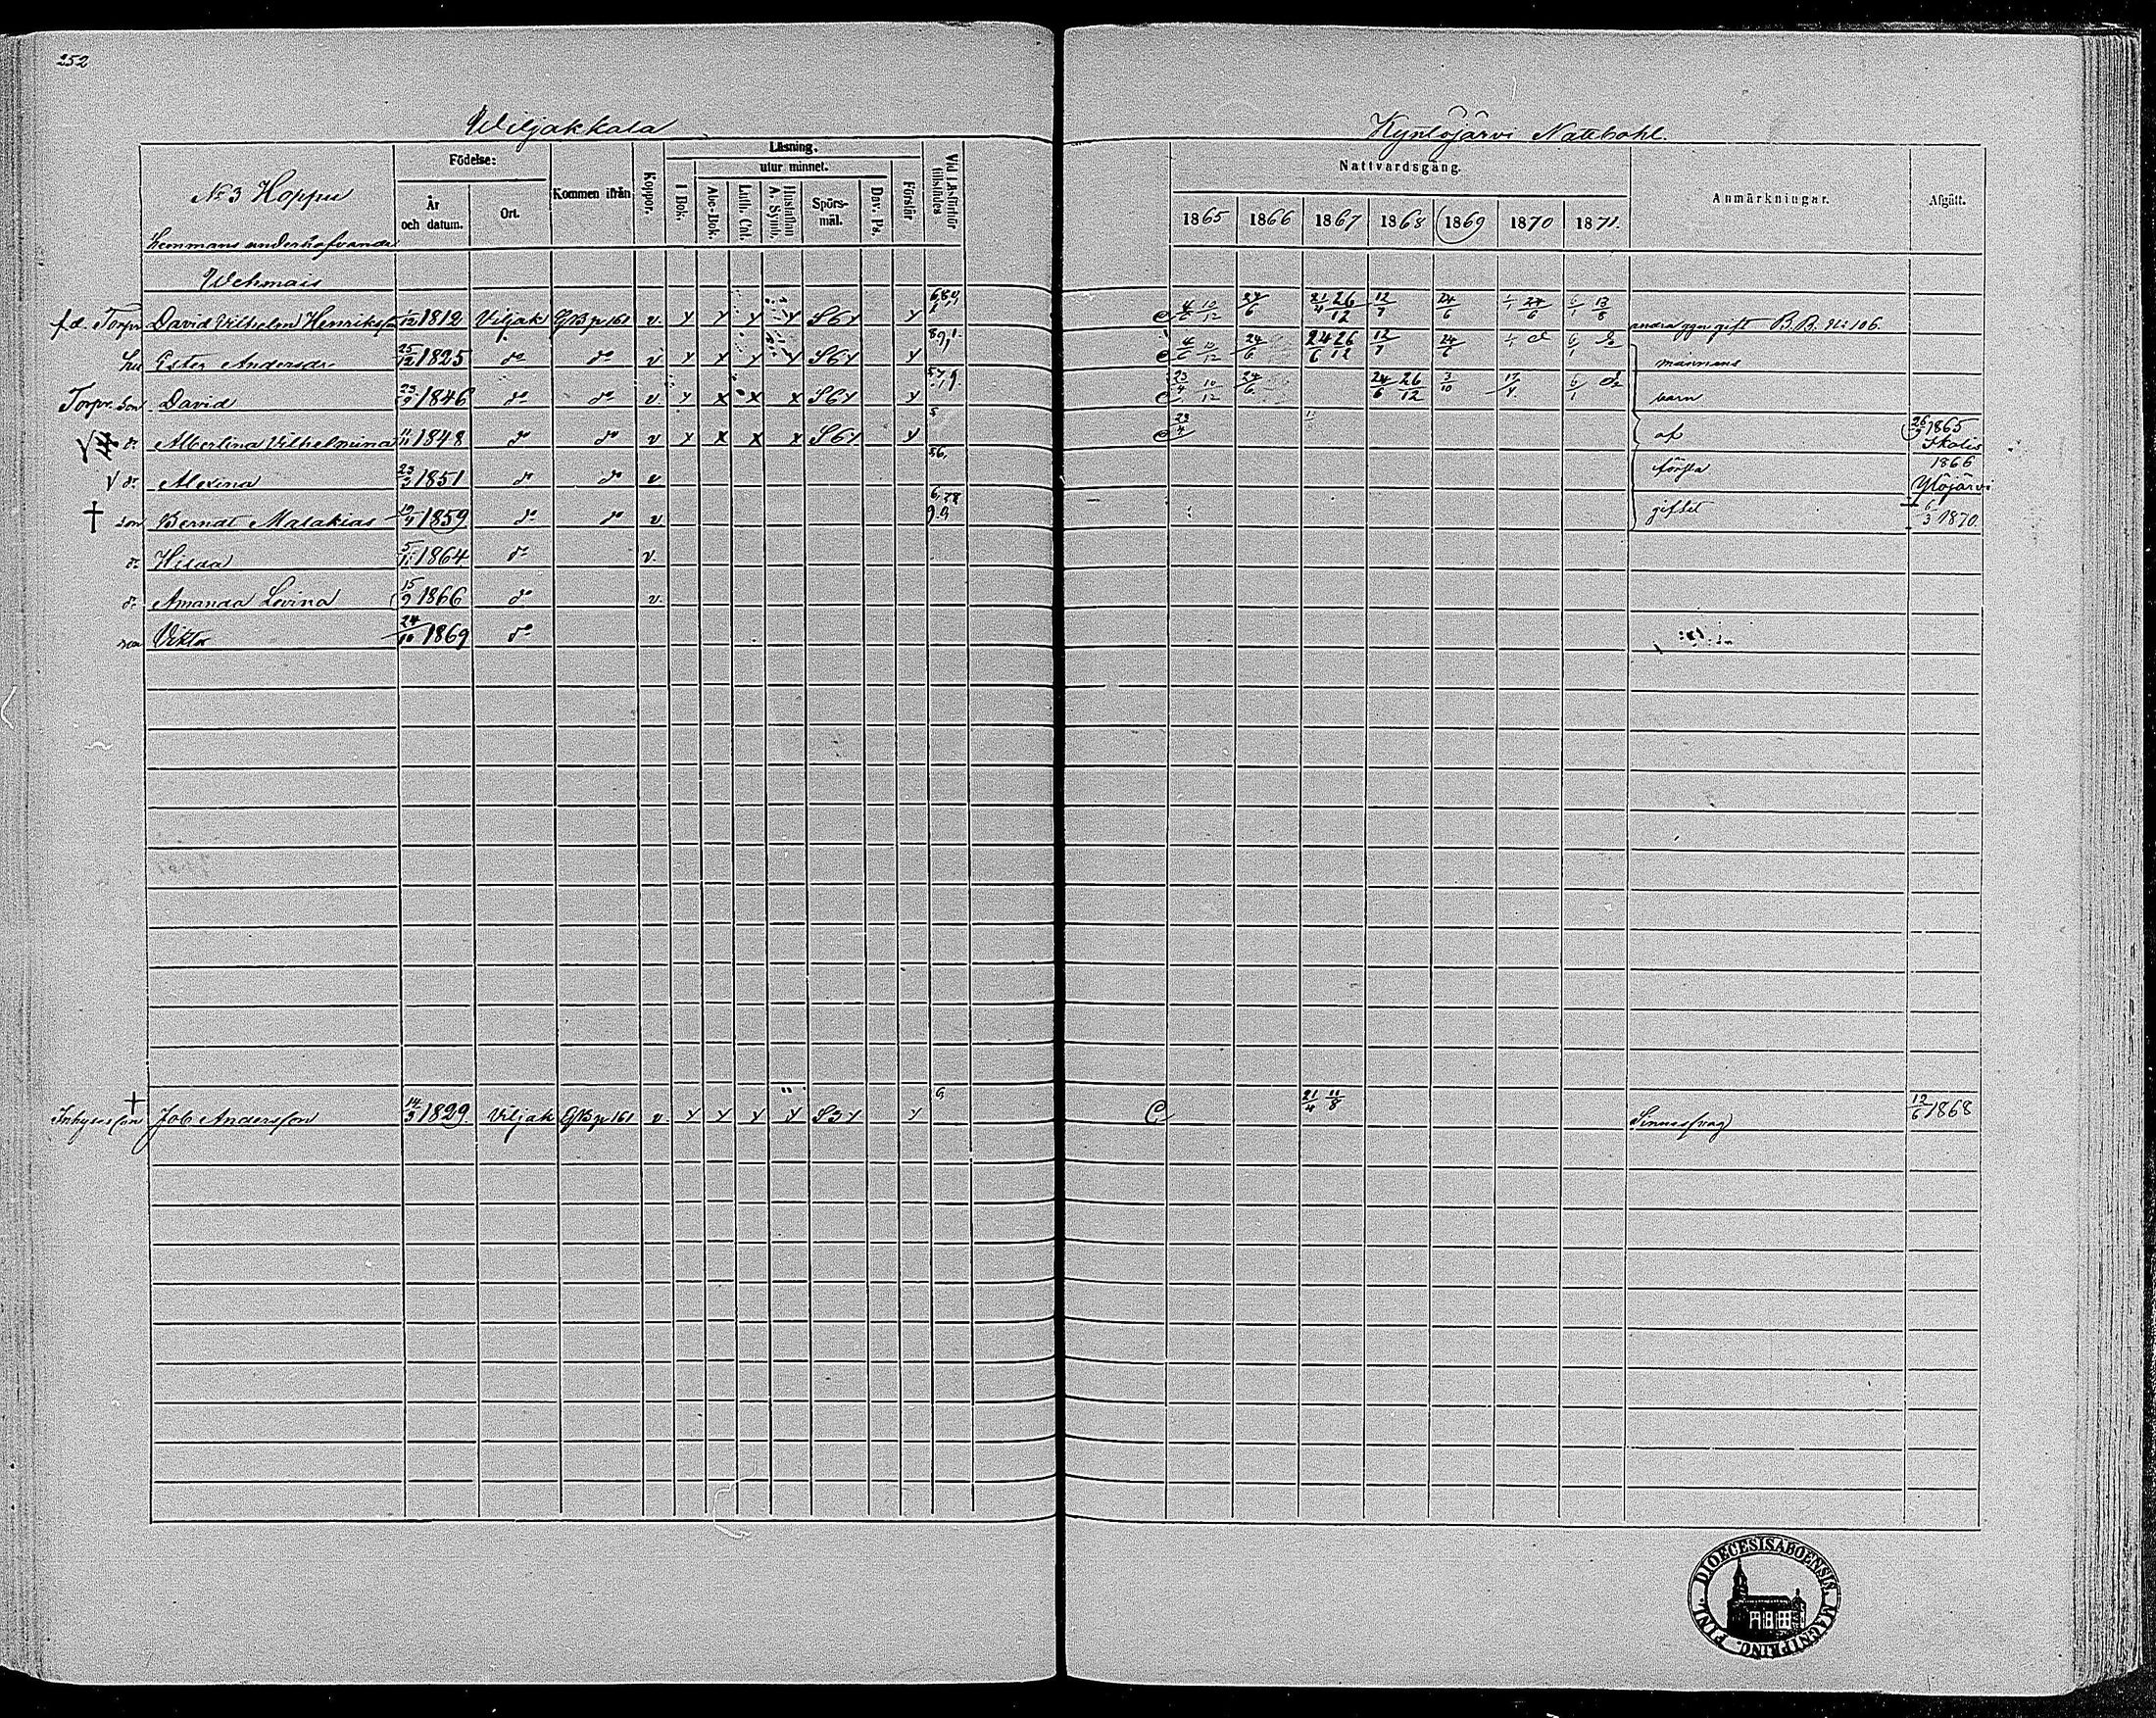 252
Wiljakkala
Kynlöjärvi Nattbohl.
No 3 Hoppu
Födelse:
År och datum.
Ort.
Kommen ifrån
Koppor.
Läsning.
I Bok.
utur minnet.
Abc-Bok.
Luth. Cat.
Hustaflan A. Symb.
Spörs-mål.
Dav. Ps.
Förstår
Vid Läsförhör tillstädes
Nattvardsgång.
1865 1866 1867 1868 1869 1870 1871.
Anmärkningar.
Afgått.
hemmans underhafvande
Wehmais
f.d. Torpr David Vilhelm Henriksson 1812 Viljak GB p 161 v. y y y y S6y y 4/6 10/12 24/6 21/4 26/12 12/7 24/6 6/1 13/8 andra ggn gift B.B. N: 106.
hu Ester Andersdr 25/12 1825 do do v y y y y S6y y 4/6 10/12 24/6 24/6 26/12 12/7 24/6 6/1 mannens
Torpr. son David 23/9 1846 do do v. y x x x S6y y 23/4 10/12 24/6 24/6 26/12 3/10 17/4 6/1 barn
dr Albertina Vilhelmina 11/11 1848 do do v y x x x S6y y 23/4 af 26/9 1865 Ikalis
dr Alexina 23/3 1851 do do v första 1866 Ylöjärvi
son Berndt Malakias 19/4 1859 do do v giftet 6/3 1870.
dr Hilda 5/11 1864 do v.
dr Amanda Lovina 15/9 1866 do v.
son Viktor 24/10 1869 do
Inhyses son Job Andersson 14/3 1829. Viljak GB p 161 v. y y y y S3y y 21/4 11/8 Sinnessvag 12/6 1868
FINL. DIOECESIS ABOENSIS MAGNI PRINC.